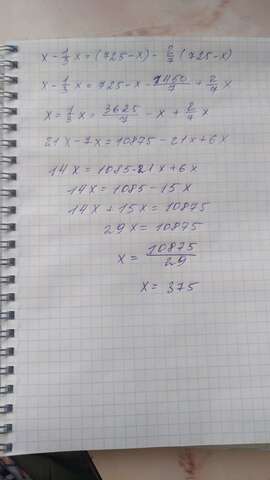 x - 1/3 x = (725-x) - 2/7 (725-x)
x - 1/3 x = 725 - x - 1450/7 + 2/7 x
x = 1/3 x = 3625/7 - x + 2/7 x
21x - 7x = 10875 - 21x + 6x
14x = 1085 - 21x + 6x
14x = 1085 - 15x
14x + 15x = 10875
29x = 10875
x = 10875/29
x = 375